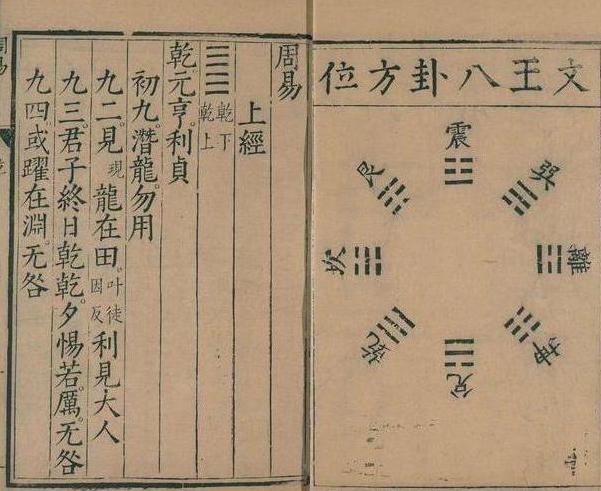 文王八卦方位
震
巽
離
坤
兌
乾
坎
艮
周易
上經
䷀乾下乾上
乾。元亨。利貞
初九。潛龍。勿用
九二。見現龍在田。叶徒因反利見大人
九三。君子終日乾乾。夕惕若。厲。无咎
九四。或躍在淵。无咎
周易